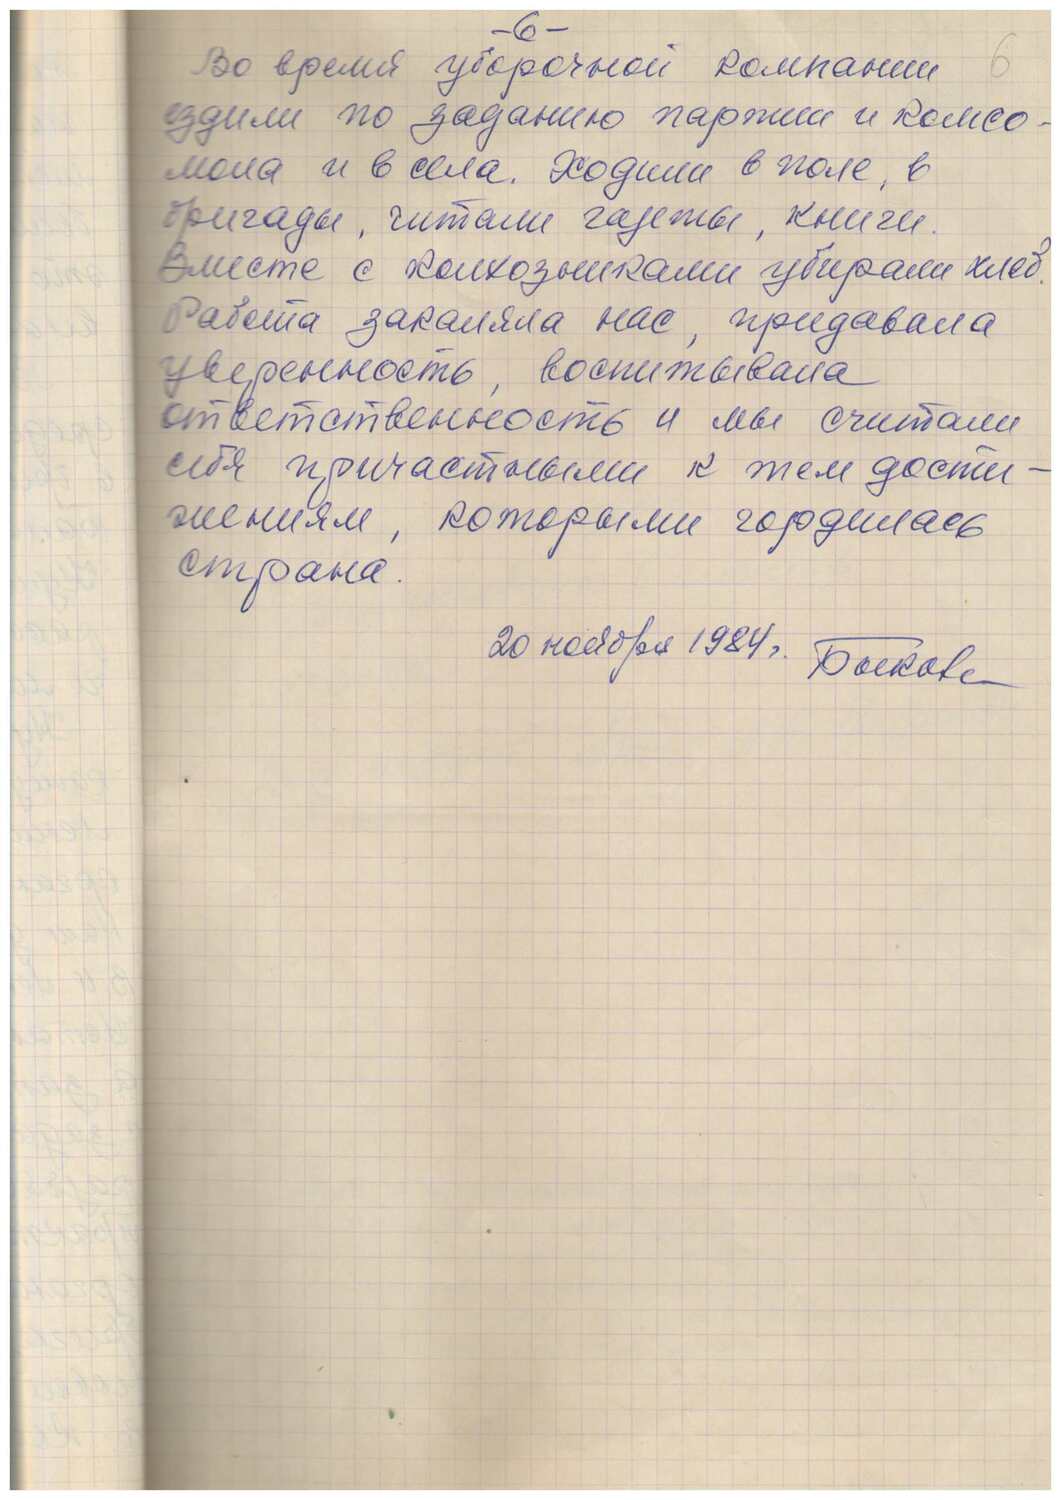 -6-
6
Во время уборочной компании
ездили по заданию партии и комсо-
мола и в села. Ходили в поле, в
бригады, читали газеты, книги.
Вместе с колхозниками убирали хлеб.
Работа закаляла нас, придавала
уверенность, воспитывала
ответственность и мы считали
себя причастными к тем дости-
жениям, которыми гордилась
страна.
20 ноября 1984 г. Быкова